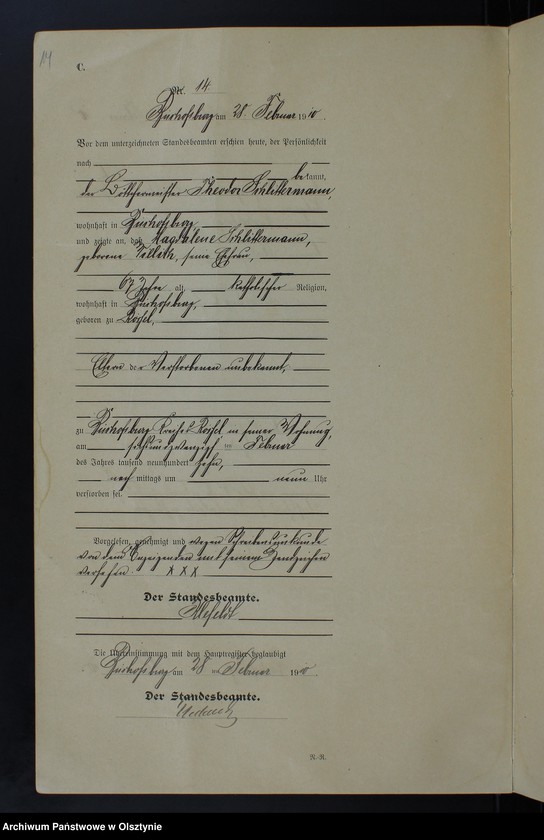 14
C.
Nr. 14
Bischofsburg am 28. Februar 1910.
Vor dem unterzeichneten Standesbeamten erschien heute, der Persönlichkeit
nach
bekannt,
der Böttchermeister Theodor Schlittermann,
wohnhaft in Bischofsburg,
und zeigte an, daß Magdalene Schlittermann,
geborene seine Ehefrau,
67 Jahre alt, katholischer Religion,
wohnhaft in Bischofsburg,
geboren zu Rößel,
Eltern der Verstorbenen unbekannt,
zu Bischofsburg Kreises Rößel in seiner Wohnung,
am sechsundzwanzigsten Februar
des Jahres tausend neunhundert zehn,
nachmittags um neun Uhr
verstorben sei.
Vorgelesen, genehmigt und wegen Schreibensunkunde
von dem Anzeigenden mit seinem Handzeichen
versehen. x x x
Der Standesbeamte.
Die Übereinstimmung mit dem Hauptregister beglaubigt
Bischofsburg am 28 ten Februar 1910.
Der Standesbeamte.
N.-R.
Archiwum Państwowe w Olsztynie